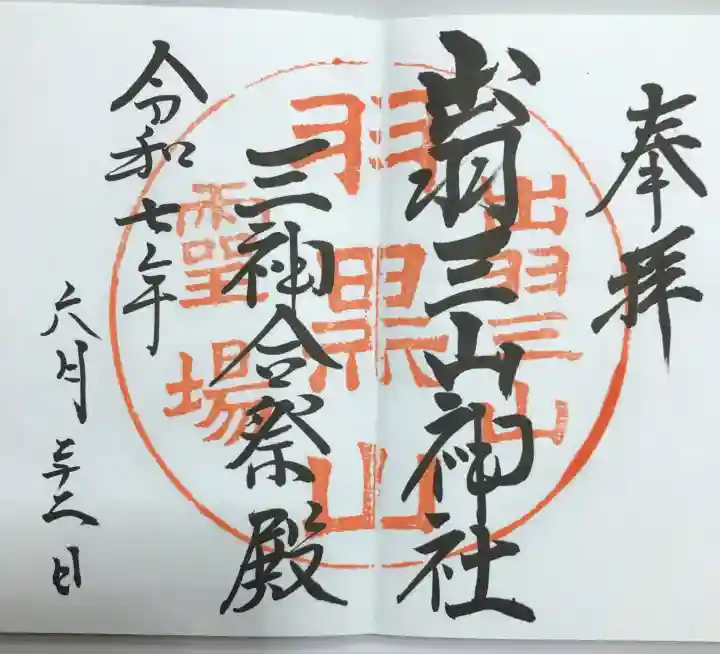 奉拝
出羽三山神社
三神合祭殿
令和七年
六月廿二日
出羽三山
羽黒山
霊場